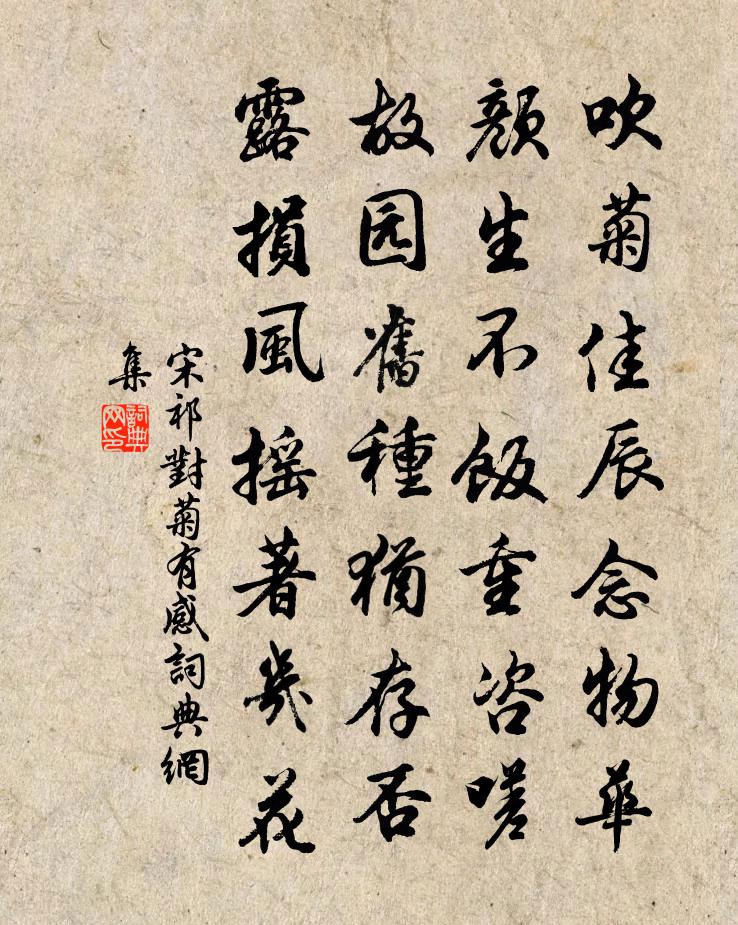 吹菊佳辰念物華
顏生不飯重咨嗟
故园舊種猶存否
露損風摇著幾花
宋祁對菊有感詞典網
集
詞典
网印